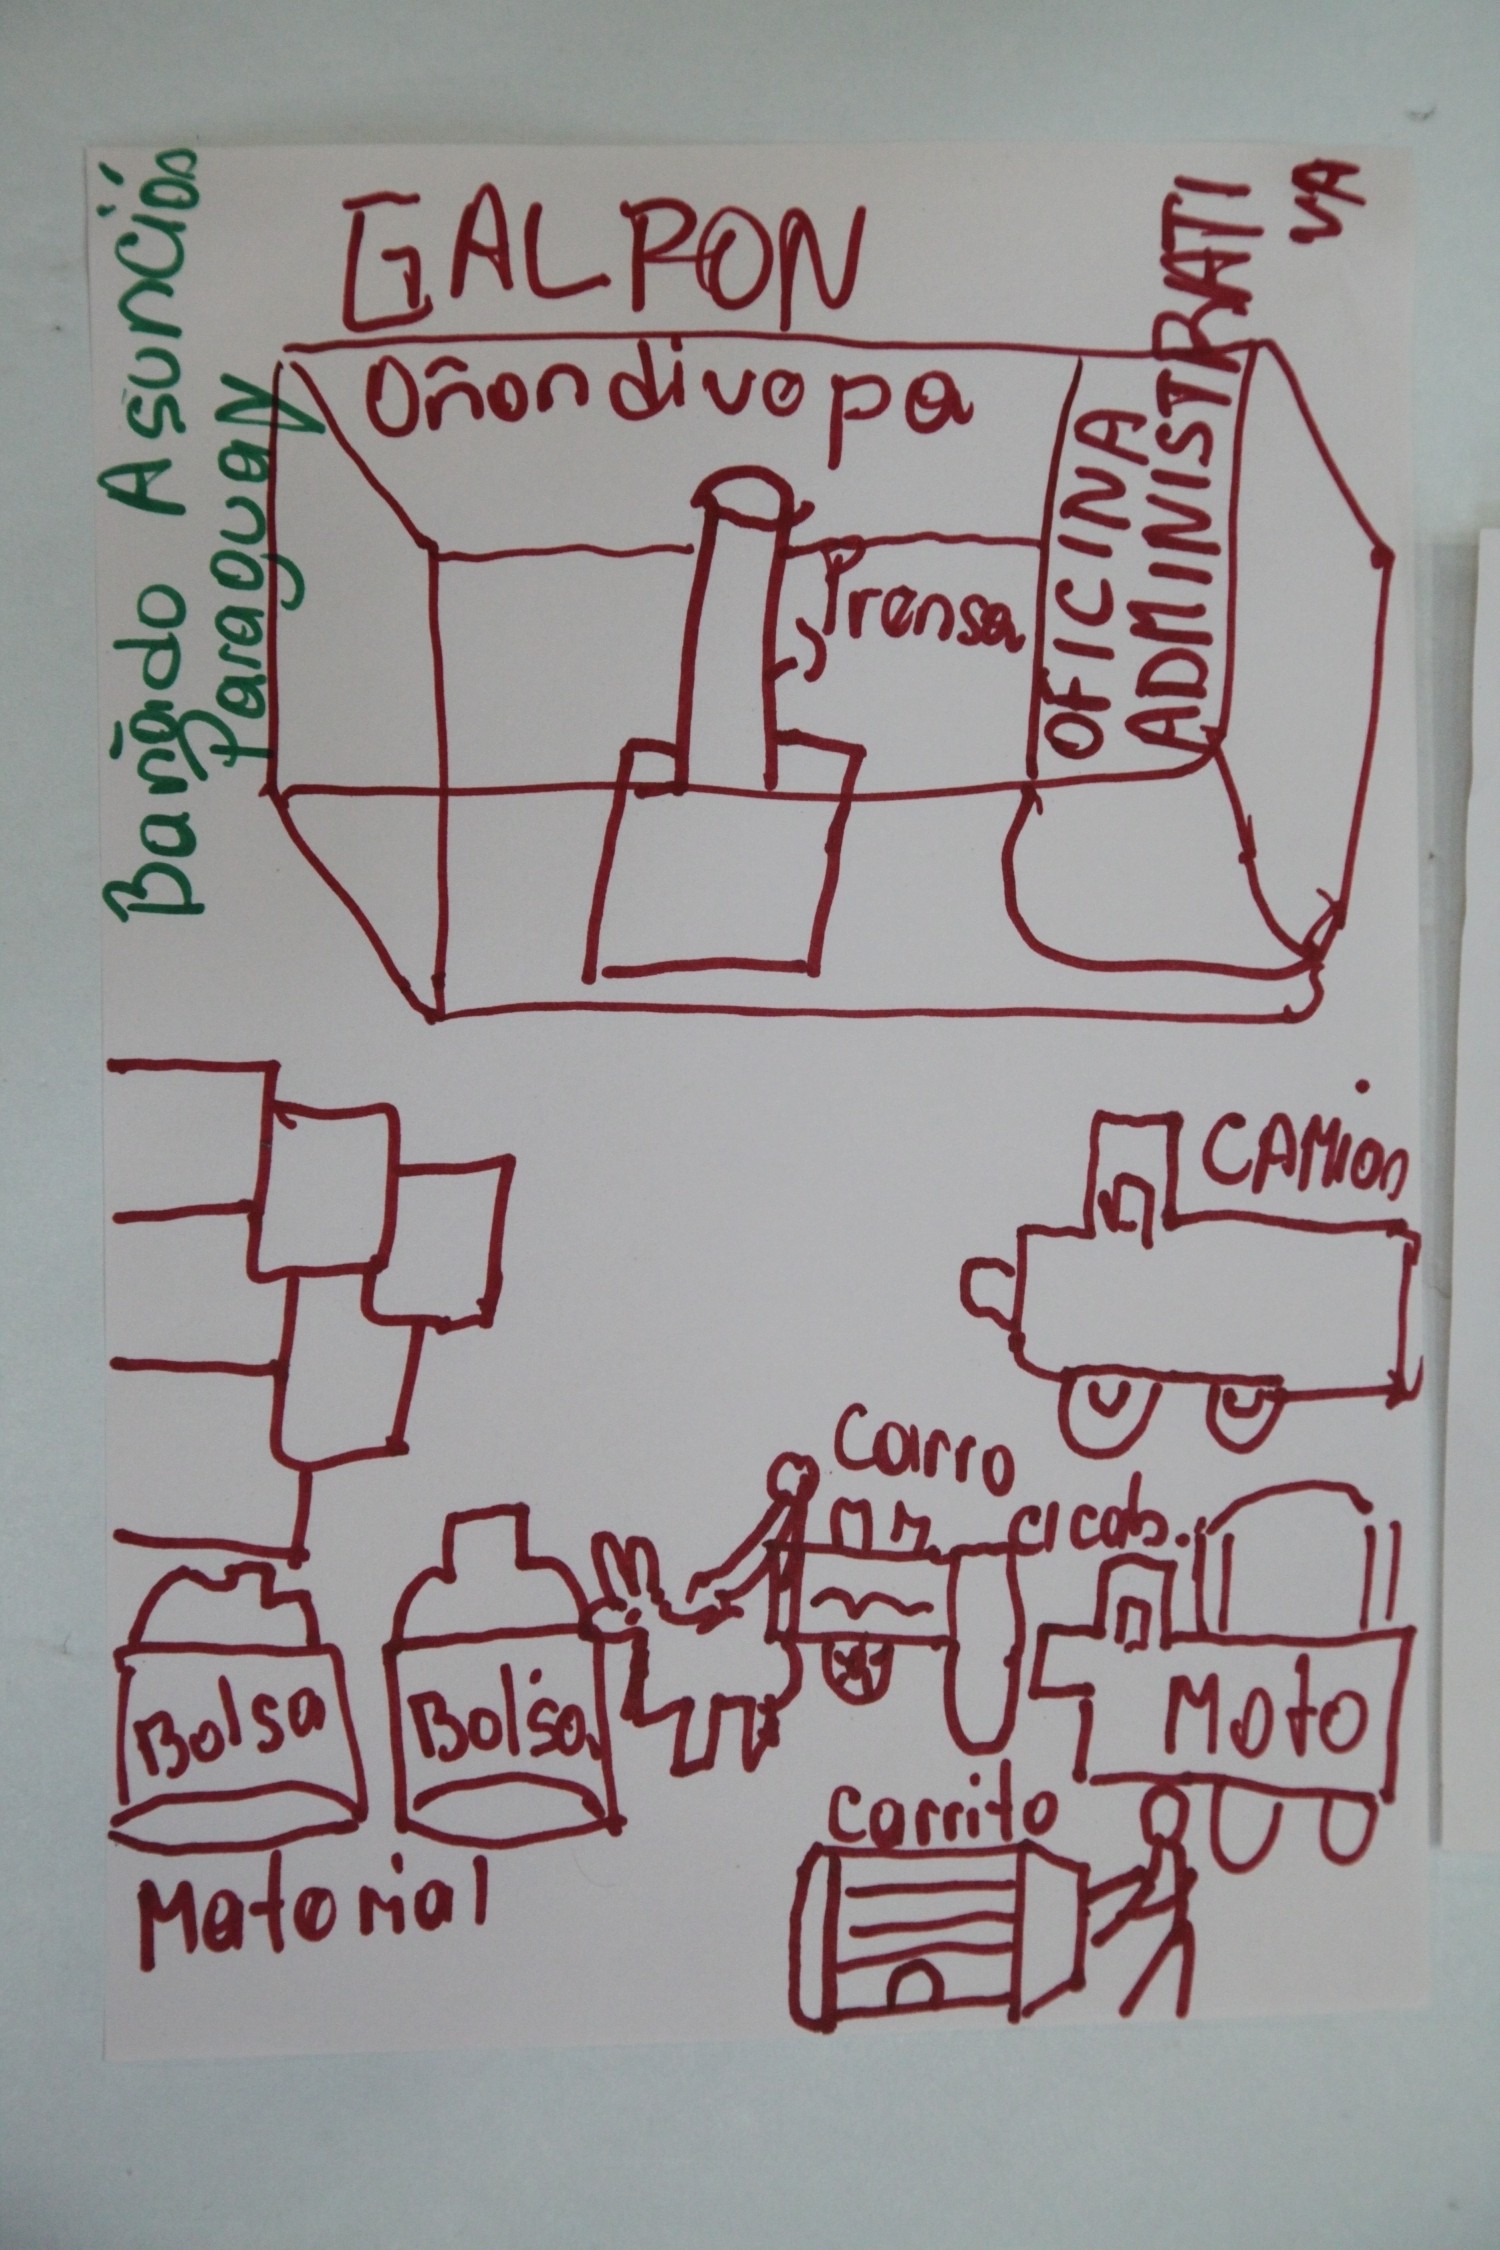 Bañado Asunción
Paraguay
GALPON
Oñondivepa
Prensa
OFICINA
ADMINISTRATI
VA
CAMion
Carro
Bolsa
Bolsa
Moto
Carrito
Material